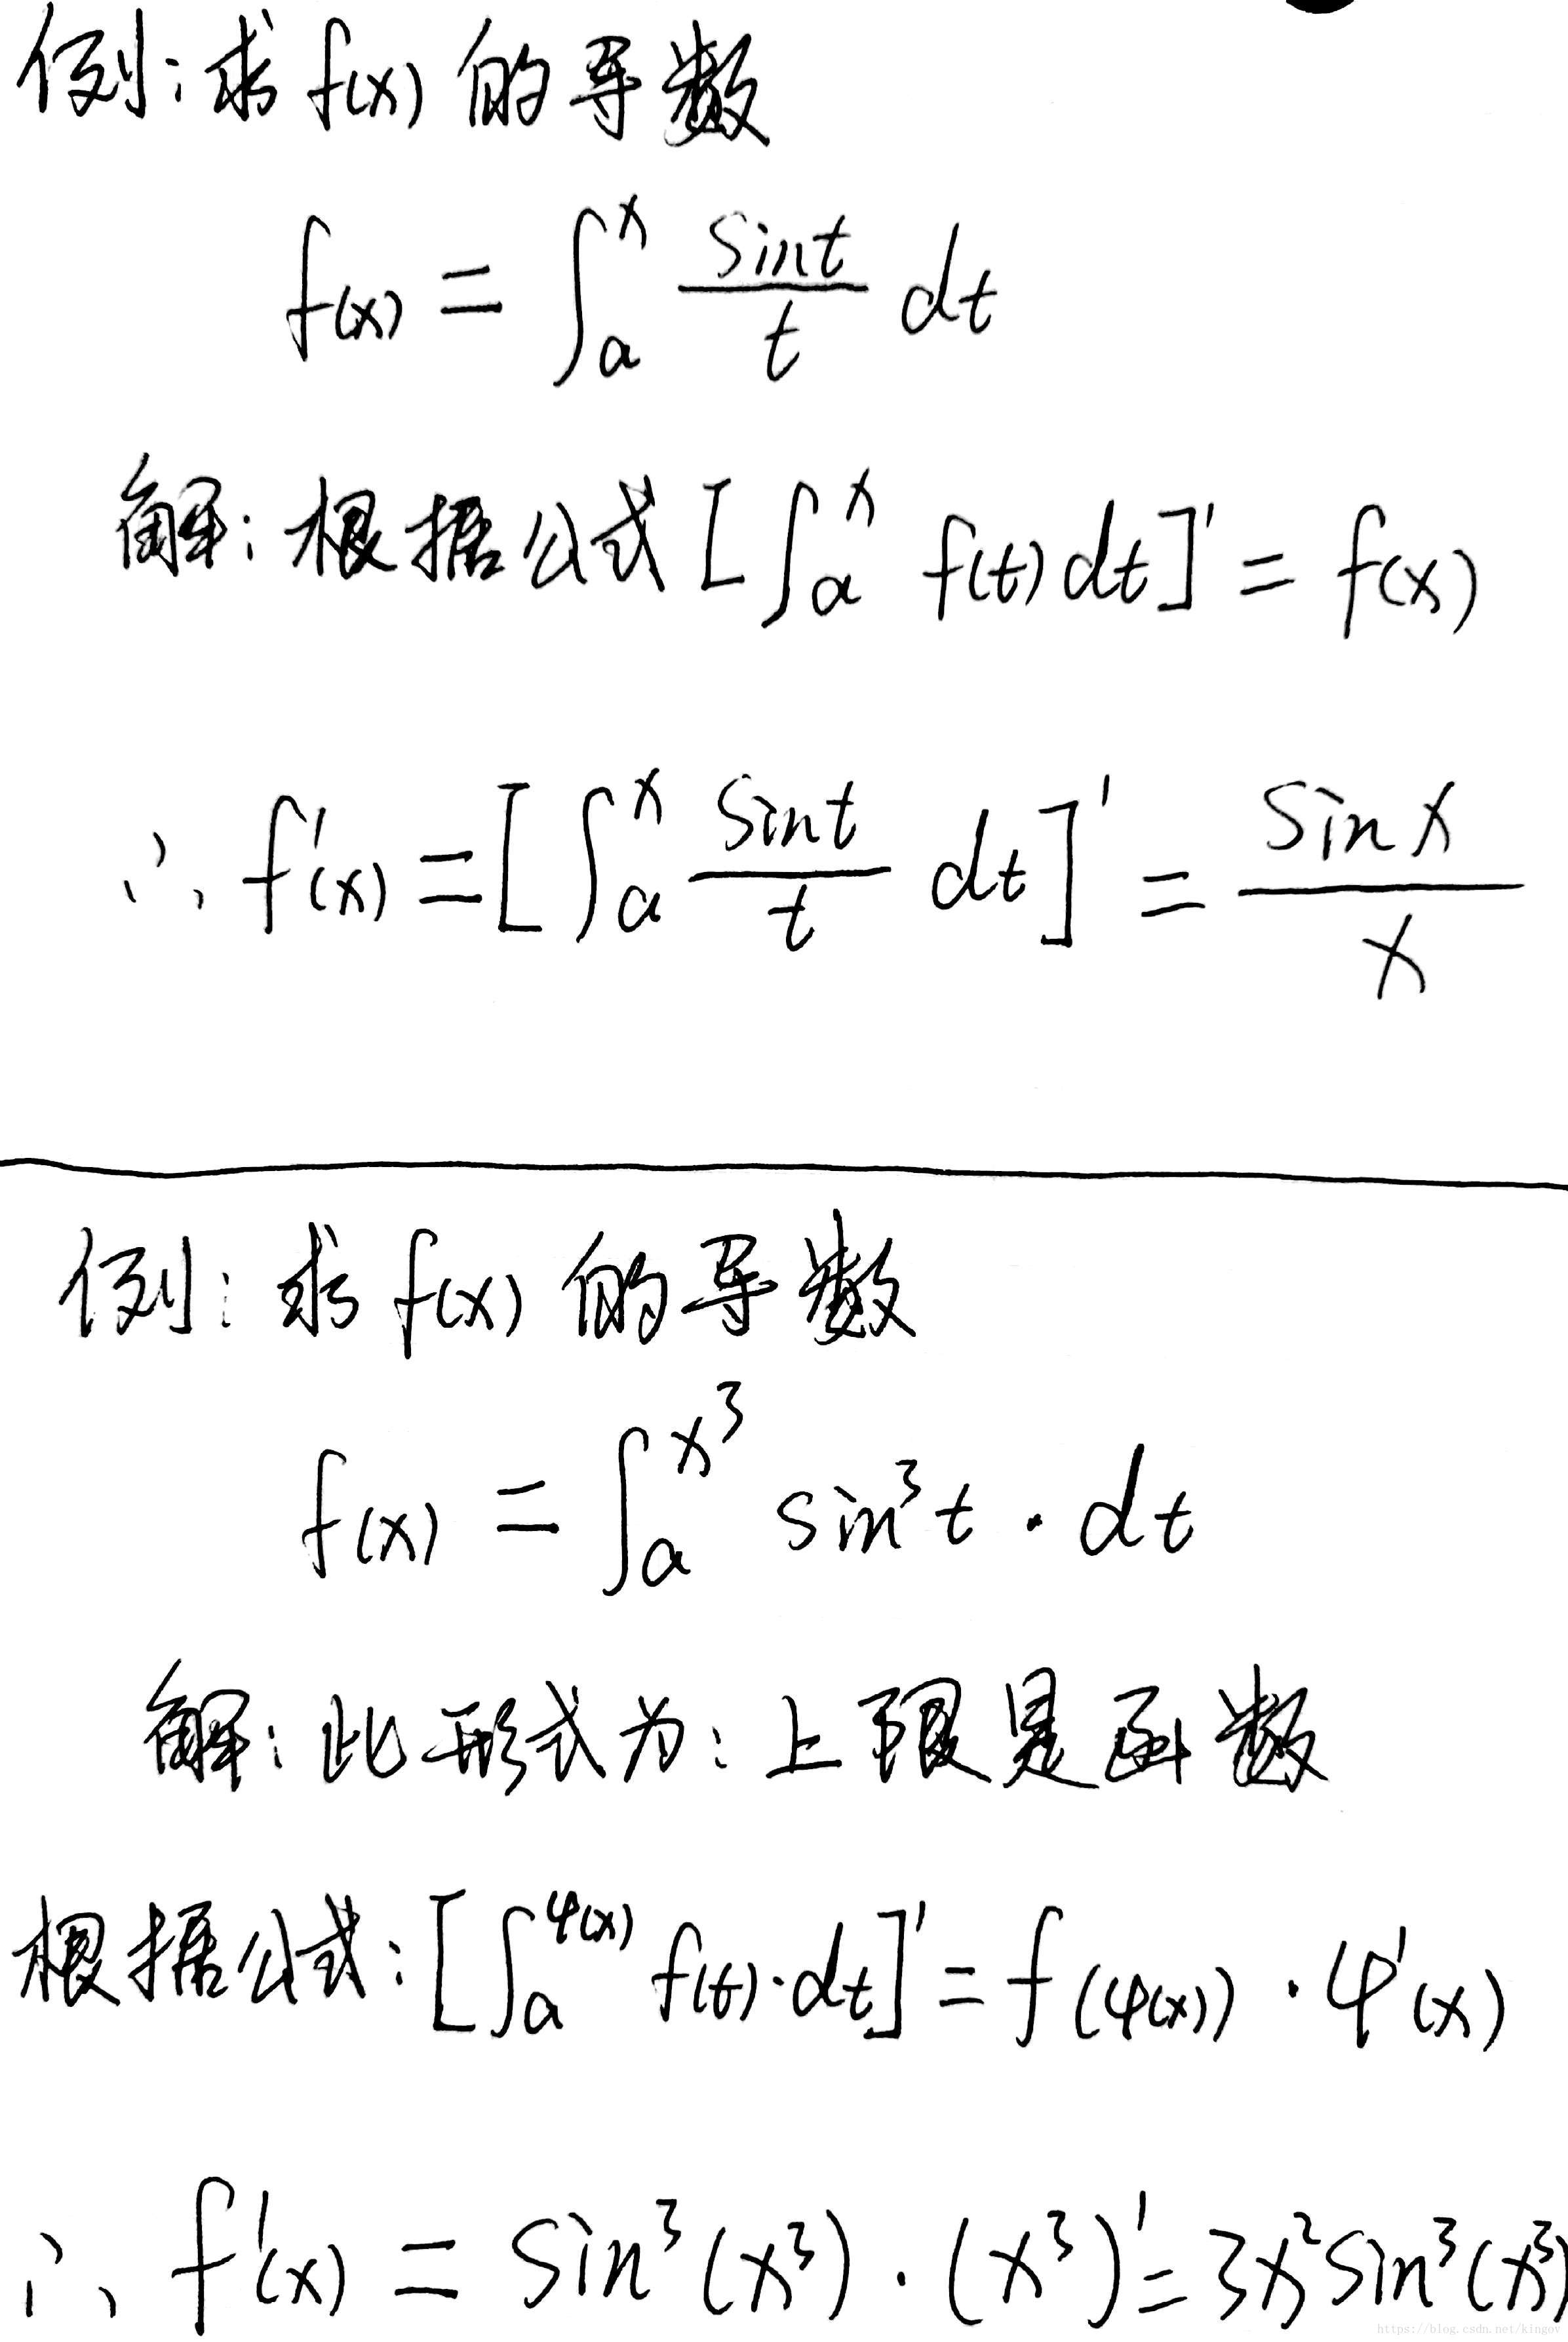 例:求 f(x) 的导数
f(x) = ∫_a^x \frac{sint}{t} dt
解:根据公式 [∫_a^x f(t)dt]' = f(x)
∴ f'(x) = [∫_a^x \frac{sint}{t} dt]' = \frac{sinx}{x}
例:求 f(x) 的导数
f(x) = ∫_a^{x^3} sin^3 t · dt
解:此形式为:上限是函数
根据公式:[∫_a^{φ(x)} f(t)·dt]' = f(φ(x)) · φ'(x)
∴ f'(x) = sin^3(x^3) · (x^3)' = 3x^2 sin^3(x^3)
https://blog.csdn.net/kingov